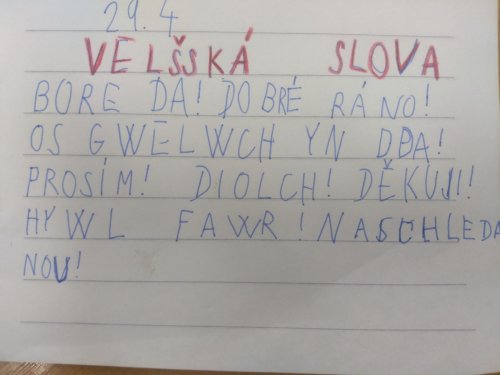 29.4
VELŠSKÁ SLOVA
BORE DA! DOBRÉ RÁNO!
OS GWELWCH YN DDA!
PROSÍM! DIOLCH! DĚKUJI!
HYWL FAWR! NASCHLEDA
NOU!